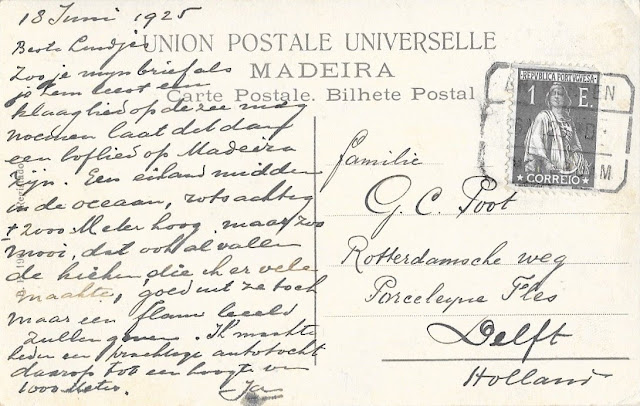 18 Juni 1925
Beste Luidjes
Zoo je mijn brief als
je 'em leest een
klaaglied op de zee mag
noemen laat dit dan
een loflied op Madeira
zijn. Een eiland midden
in de oceaan, rotsachtig
± 2000 Meter hoog. maar zoo
mooi, dat ook al vallen
de kieken, die ik er vele
maakte, goed uit ze toch
maar een flauw beeld
zullen geven. Ik maakte
een prachtige autotocht
daarop tot een hoogte van
1000 Meter.
UNION POSTALE UNIVERSELLE
MADEIRA
Carte Postale. Bilhete Postal
REPUBLICA PORTUGUESA
1 E.
CORREIO
Familie
G. C. Poot
Rotterdamsche weg
Porceleyne Fles
Delft
Holland